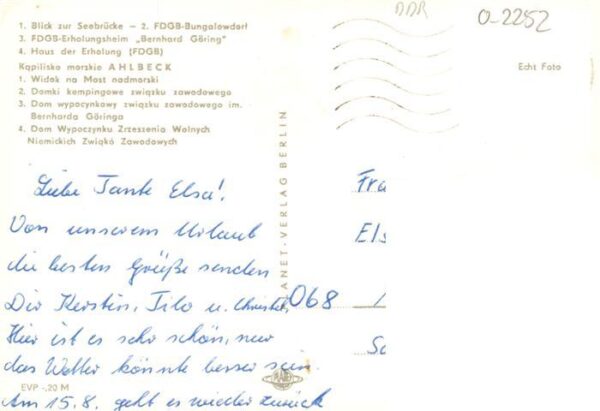 1. Blick zur Seebrücke – 2. FDGB-Bungalowdorf
3. FDGB-Erholungsheim „Bernhard Göring"
4. Haus der Erholung (FDGB)
Kąpilisko morskie AHLBECK
1. Widok na Most nadmorski
2. Domki kempingowe związku zawodowego
3. Dom wypoczynkowy związku zawodowego im.
Bernharda Göringa
4. Dom Wypoczynku Zrzeszenia Wolnych
Niemickich Związkó Zawodowych
DDR
0-2252
Echt Foto
Liebe Tante Elsa!
Von unserem Urlaub
die besten Grüße senden
Dir Kerstin, Tilo u. Christel.
Hier ist es sehr schön, nur
das Wetter könnte besser sein.
Am 15.8. geht es wieder zurück
EVP -.20 M
ANET-VERLAG BERLIN
PLANET
Fra
Els
068